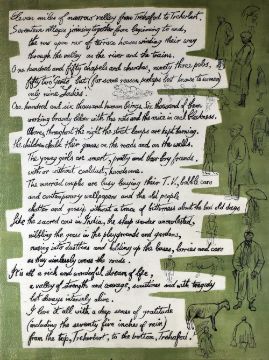 Eleven miles of narrow valley from Trehafod to Treherbert,
Seventeen villages joining together from beginning to end,
the row upon row of terrace houses winding their way
through the valley as the river and the trains.
One hundred and fifty chapels and churches, seventy three pubs,
fifty two 'Gents' but (for some reason perhaps lost because its turned
only nine Ladies.
One hundred and six thousand human beings. Six thousand of them
working bravely below with the rats and the mice in cruel Darkness.
Above, throughout the night the street lamps are kept burning.
The children chalk their games on the roads and on the walls.
The young girls are smart, pretty and has boy friends,
with or without coaldust, handsome.
The married couples are busy buying their T.V., bubble cars
and contemporary wallpapers and the old people
chatter and gossip without a trace of bitterness about the bad old days.
Like the sacred cows in India, the sheep wander unmolested,
nibbling the grass in the playgrounds and gardens,
nosing into dustbins and holding up the buses, lorries and cars
as they aimlessly cross the roads.
It's all a rich and wonderful dream of life,
a valley of strength and courage, sometimes sad with tragedy
but always intensely alive.
I love it all with a deep sense of gratitude
(including the seventy five inches of rain)
from the top, Treherbert, to the bottom, Trehafod!